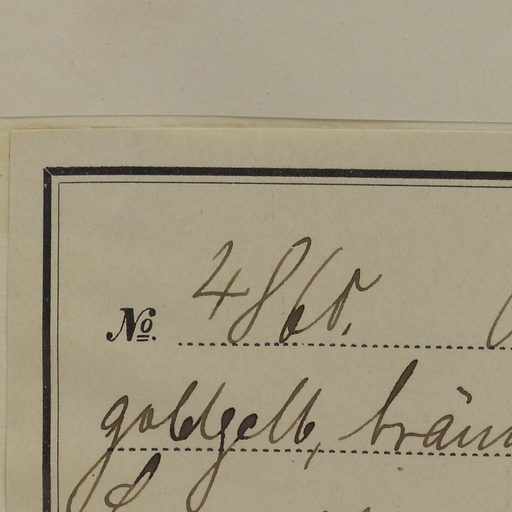 No. 4868.
goldgelb, bräun